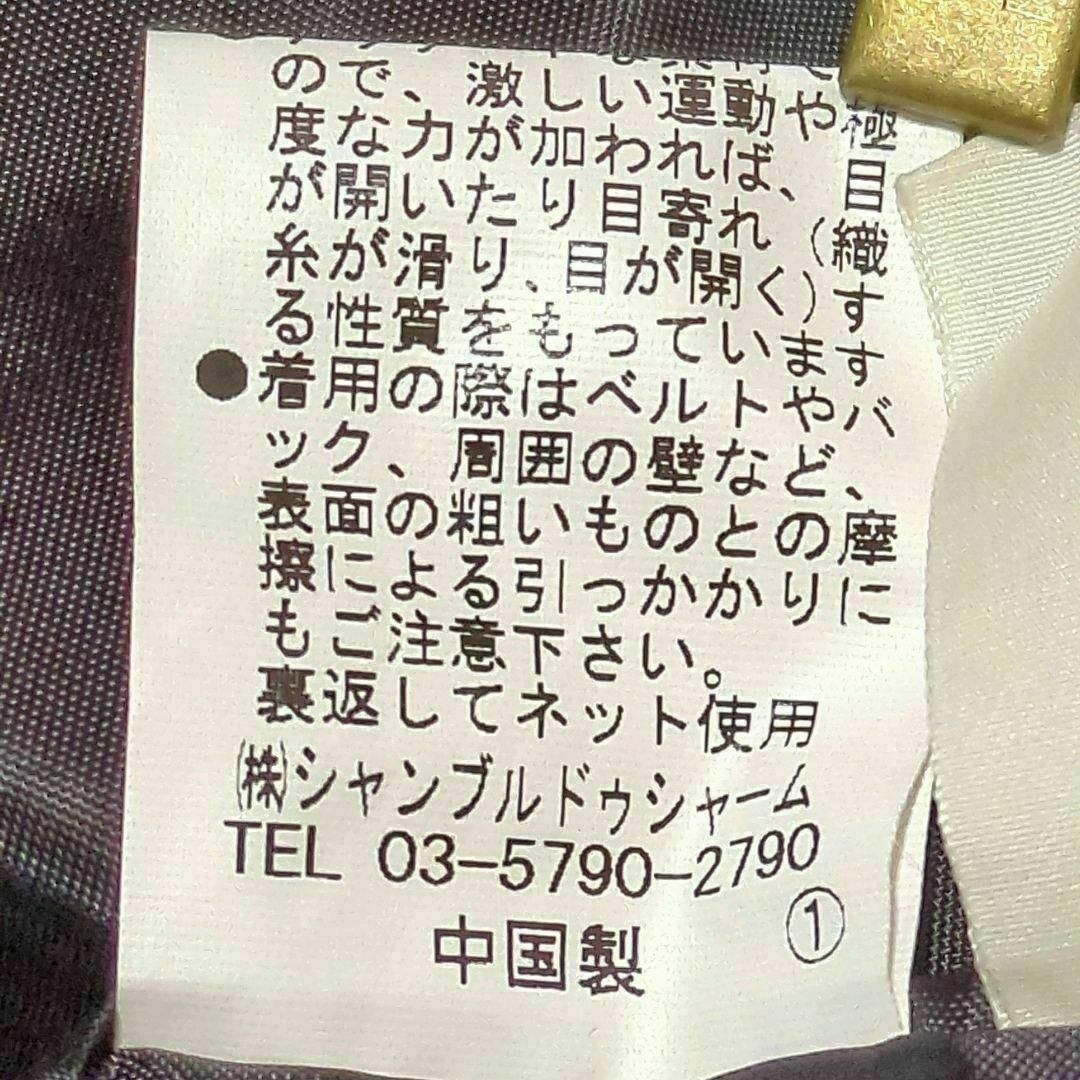 の で、激しい運動や極
度な力が加われば、目
が開いたり目寄れ(織
糸が滑り、目が開く)す
る性質をもっています
●着用の際はベルトやバ
ック、周囲の壁など、
表面の粗いものとの摩
擦による引っかかりに
もご注意下さい。
裏返してネット使用
㈱シャンブルドゥシャーム
TEL 03-5790-2790
①
中国製